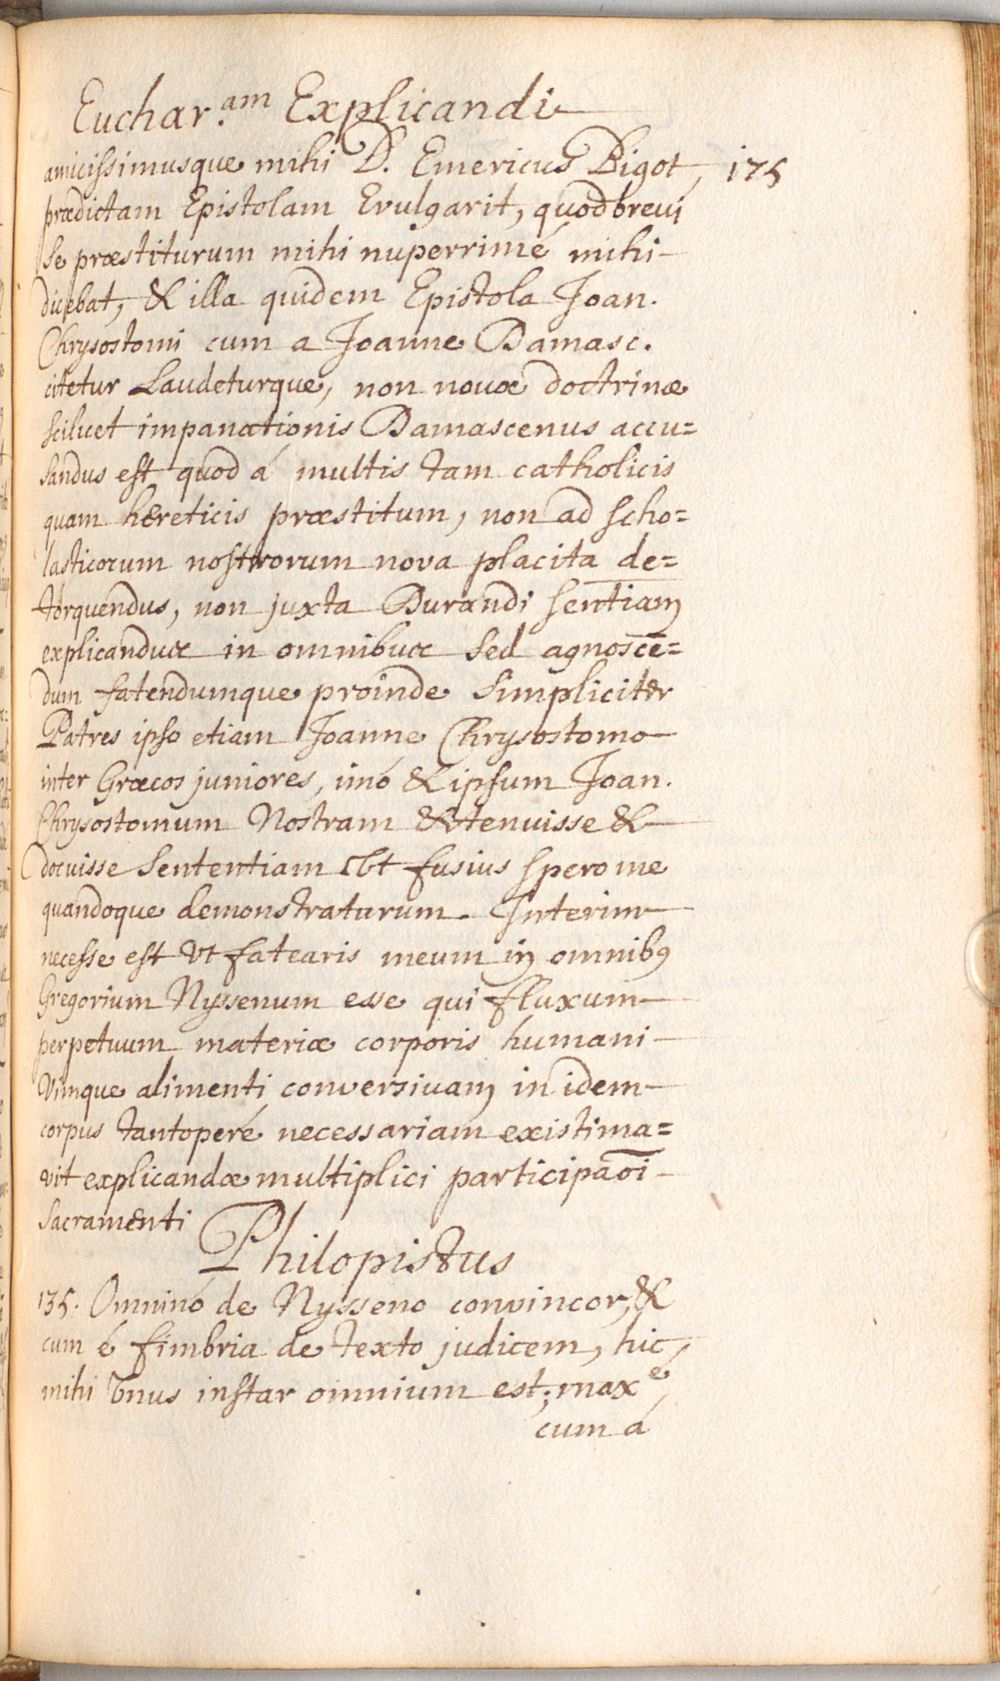 Euchar.am Explicandi
amicissimusque mihi D. Emericus Bigot, 175
prædictam Epistolam Evulgarit, quod brevi
se præstiturum mihi nuperrimé mihi
dicebat, & illa quidem Epistola Joan.
Chrysostomi cum a Joanne Damasc.
citetur Laudeturque, non novæ doctrinæ
scilicet impanationis Damascenus accu=
sandus est quod á multis tam catholicis
quam hæreticis præstitum, non ad scho=
lasticorum nostrorum nova placita de=
torquendus, non juxta Durandi sentiam
explicandus in omnibus sed agnoscē=
dum fatendumque proinde simpliciter
Patres ipso etiam Joanne Chrysostomo
inter Græcos juniores, imó & ipsum Joan.
Chrysostomum Nostram & tenuisse &
docuisse sententiam Vt fusius spero me
quandoque demonstraturum. Interim
necesse est Vt fatearis meum in omnibus
Gregorium Nyssenum esse qui fluxum
perpetuum materiæ corporis humani
Vimque alimenti conversivam in idem
corpus tantoperé necessariam existima=
vit explicandæ multiplici participaōi
sacramenti
Philopistus
135. Omninó de Nysseno convincor, &
cum é fimbria de texto judicem, hic,
mihi Vnus instar omnium est; maxe,
cum á